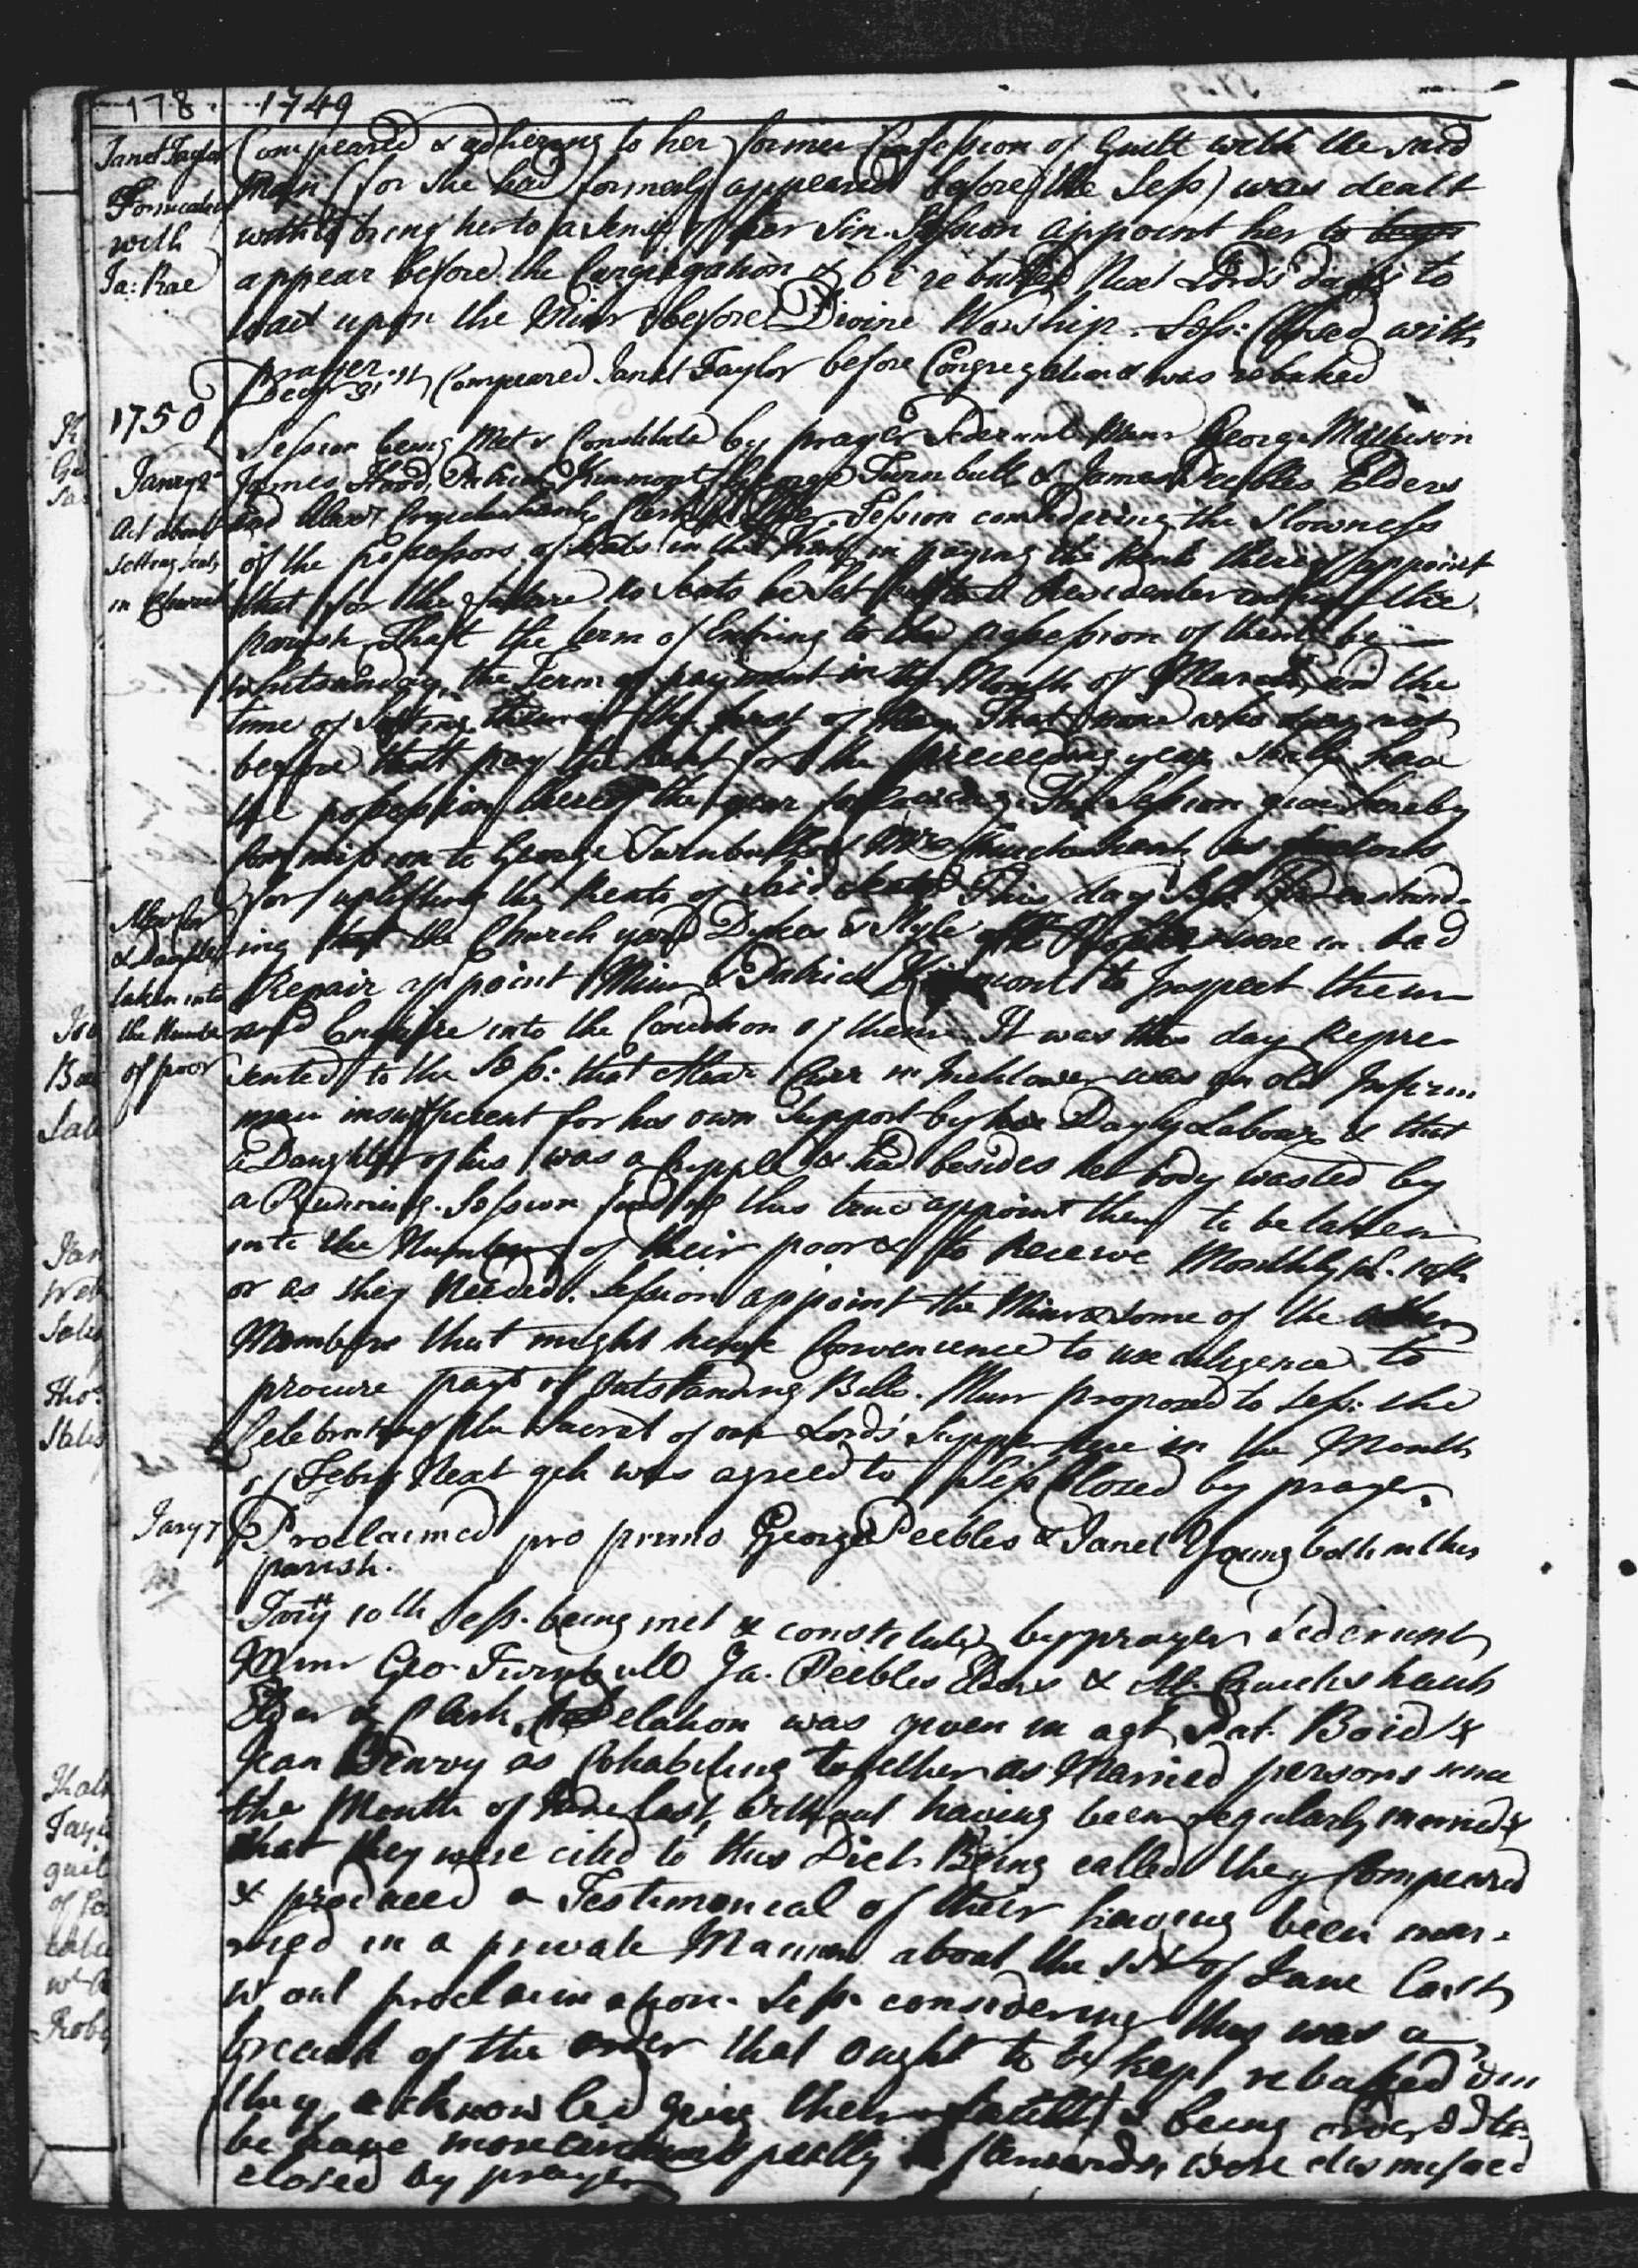 178 1749
Janet Taylor
Fornication
with
Ja: Rae
Compeared & adhering to her former Confession of Guilt with the said
Man (for she had formerly appeared before the Sess) was dealt
with to bring her to a sense of her Sin. Session appoint her to
appear before the Congregation & be rebuked Next Lord's day & to
wait upon the Minr before Divine Worship. Sess: Closed with
prayer.
Decr 31st Compeared Janet Taylor before Congregation & was rebuked
1750
Janry 2d
Act about
Setting Seats
in Church
Session being Met & Constitute by prayer Sederunt Minr George Mathison
James Hood, Patrick Kinmont George Turnbull & James Peebles Elders
and Alexr Cruickshank Clerk & Elder. Session considering the Slowness
of the possessors of Seats in this Kirk in paying the Rents thereof appoint
that for the future no Seats be Set but to Residenters within the
parish That the term of Entring to the possession of them be
Whitsunday, the Term of payment in the Month of March, and the
time of Setting them at the first of May. That none who does not
before that pay the Rent for the preceeding year shall have
the possession thereof the year following. The Session gives hereby
Commission to George Turnbull & Alexr Cruickshank as
for uplifting the Rents of said Seats This day Sess. understand-
ing that the Church yard Dykes & Style were in bad
Repair appoint Minr & Patrick Kinmont to Inspect them
and Enquire into the Condition of them. It was this day Repre-
sented to the Sess: that Alexr Carr in was an old Infirm
man insufficient for his own Support by his Dayly Labour & that
a Daughter of his was a Cripple & had besides her body wasted by
a Running. Session finding this true appoint them to be taken
into the Number of their poor & to Receive Monthly
or as they Needed. Session appoint the Minr & some of the other
Members that might have Convenience to use diligence to
procure payt of outstanding Bills. Minr proposed to Sess: the
Celebrating the Sacrat of our Lord's Supper here in the Month
of Febry Next qch was agreed to Sess Closed by prayer.
Alexr Carr
& Daughter
taken into
the Number
of poor
Jary 7
Proclaimed pro primo George Peebles & Janet Young both in this
parish.
Jary 10th Sess. being met & constituted by prayer Sederunt
Minr Geo. Turnbull Ja. Peebles Elders & Al. Cruickshank
Elder & Clerk. Delation was given in agt Pat. Boid &
Jean as Cohabiting together as Married persons since
the Month of June last, without having been regularly married &
that they were cited to this Diet. Being called they Compeared
& produced a Testimonial of their having been mar-
ried in a private Manner about the 1st of June last
wtout proclamation. Sess. considering this was a
breach of the order that ought to be kept rebuked ym
they acknowledging their fault & being ordered to
behave more circumspectly afterwards were dismissed
closed by prayer